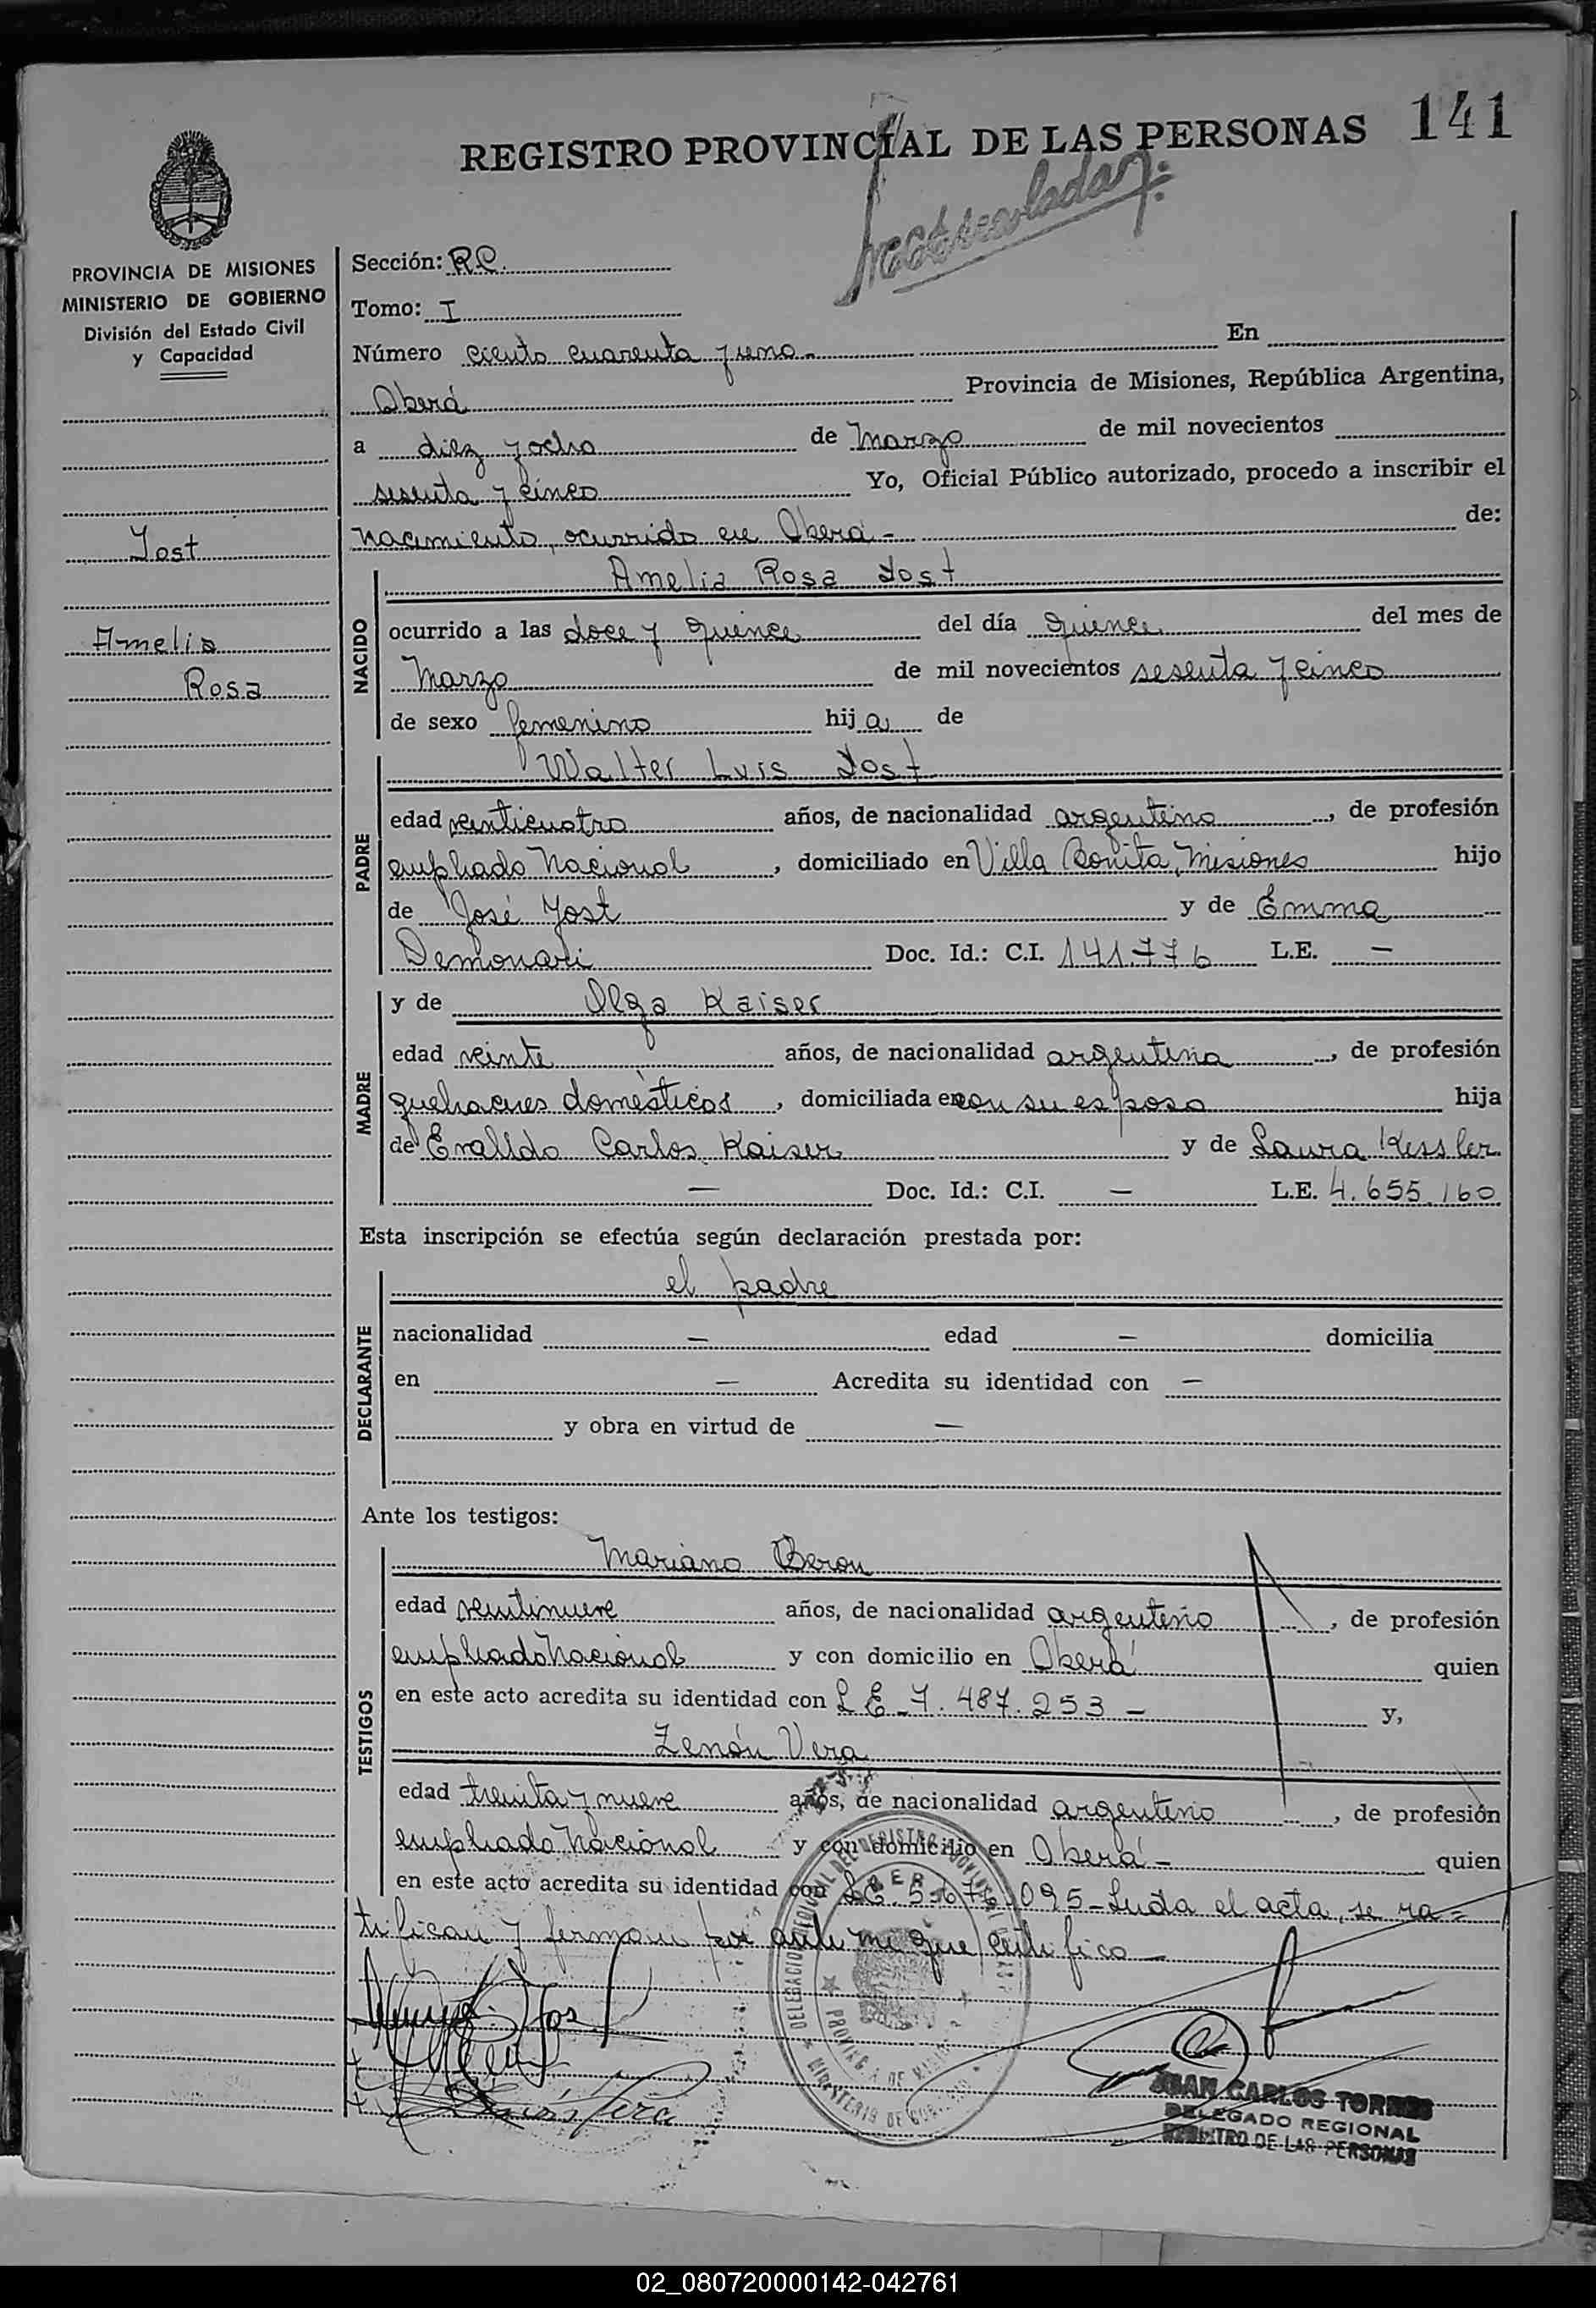 REGISTRO PROVINCIAL DE LAS PERSONAS 141
PROVINCIA DE MISIONES
MINISTERIO DE GOBIERNO
División del Estado Civil
y Capacidad
Yost
Amelia
Rosa
Sección: R.C.
Tomo: I
Número ciento cuarenta y uno.- En
Oberá Provincia de Misiones, República Argentina,
a diez y ocho de Marzo de mil novecientos
sesenta y cinco Yo, Oficial Público autorizado, procedo a inscribir el
nacimiento, ocurrido en Oberá - de:
NACIDO
Amelia Rosa Yost
ocurrido a las doce y quince del día quince del mes de
Marzo de mil novecientos sesenta y cinco
de sexo femenino hija de
PADRE
Walter Luis Yost
edad veinticuatro años, de nacionalidad argentino, de profesión
empleado Nacional, domiciliado en Villa Bonita, Misiones hijo
de José Yost y de Emma
Demonari Doc. Id.: C.I. 141.776 L.E. —
MADRE
y de Olga Kaiser
edad veinte años, de nacionalidad argentina, de profesión
quehaceres domésticos, domiciliada en con su esposo hija
de Evalldo Carlos Kaiser y de Laura Kessler
— Doc. Id.: C.I. — L.E. 4.655.160
Esta inscripción se efectúa según declaración prestada por:
DECLARANTE
el padre
nacionalidad — edad — domicilia
en — Acredita su identidad con —
y obra en virtud de —
Ante los testigos:
TESTIGOS
Mariano Beron
edad veintinueve años, de nacionalidad argentino, de profesión
empleado Nacional y con domicilio en Oberá quien
en este acto acredita su identidad con L E - 7.487.253 - y,
Zenón Vera
edad treinta y nueve años, de nacionalidad argentino, de profesión
empleado Nacional y con domicilio en Oberá - quien
en este acto acredita su identidad con LE. 095 - Leida el acta, se ra=
tifican y firman por ante mi que certifico -
JUAN CARLOS TORRES
DELEGADO REGIONAL
REGISTRO DE LAS PERSONAS
02_080720000142-042761